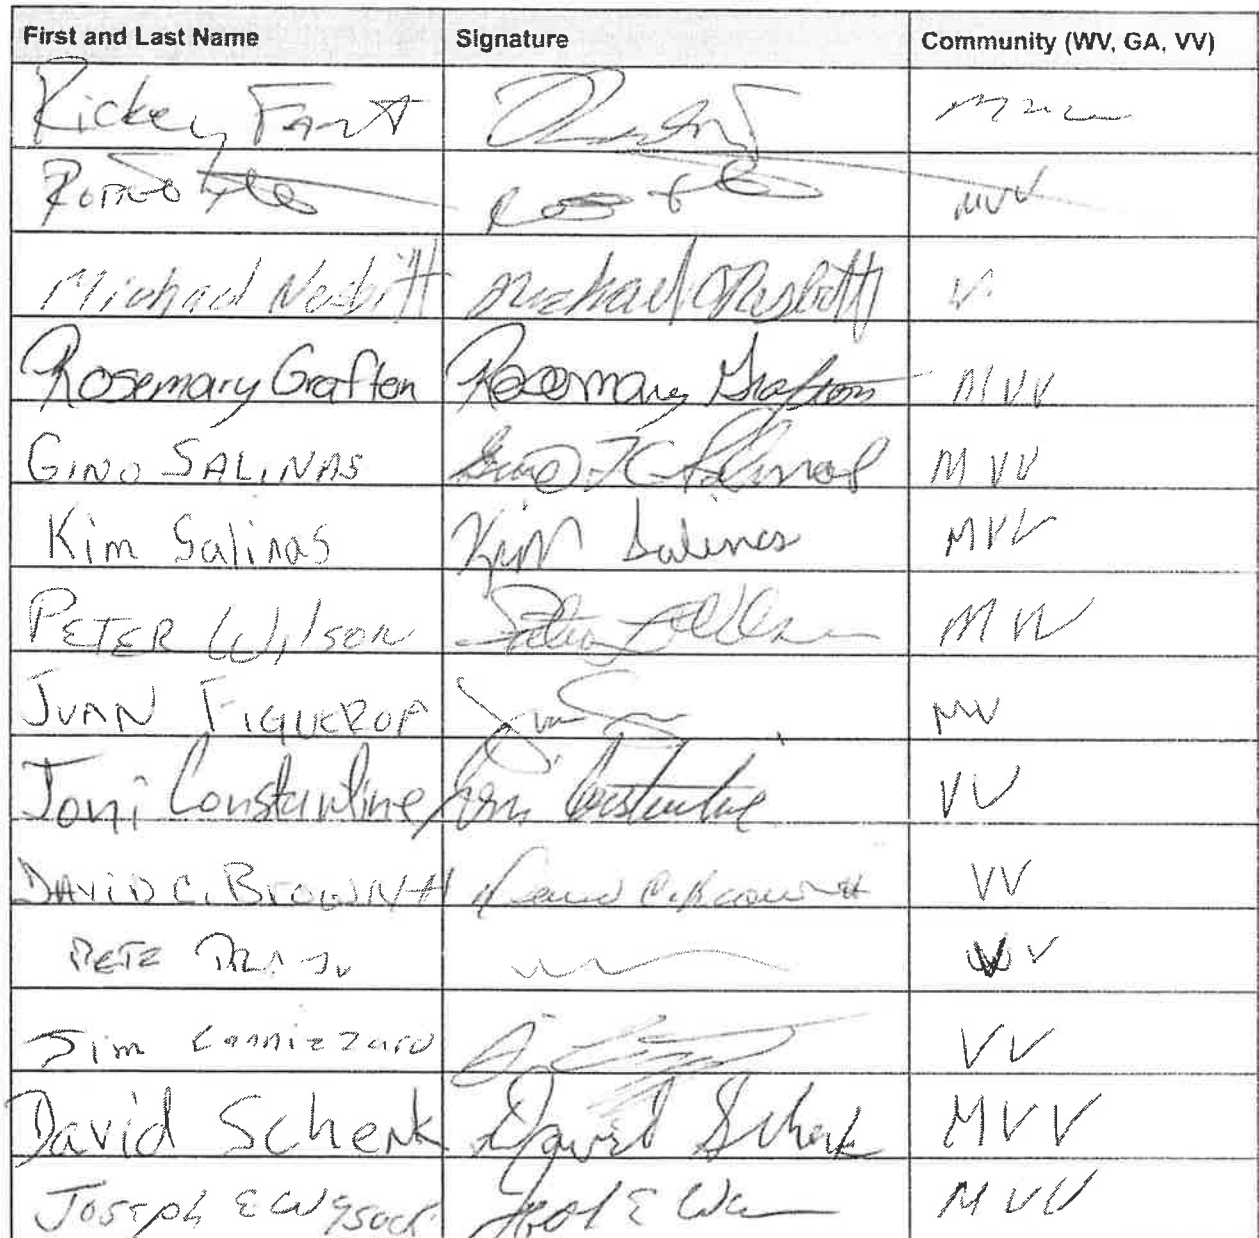 First and Last Name Signature Community (WV, GA, VV)
Rickey
MVV
Michael Nesbitt Michael Nesbitt V.
Rosemary Grafton Rosemary Grafton MVV
GINO SALINAS Gino Salinas MVV
Kim Salinas Kim Salinas MVV
PETER Wilson Peter Wilson MVV
JUAN FIGUEROA Juan MVV
Joni Constantine Joni Constantine VV
DAVID C. BROWN II David C. Brown II VV
PETE VV
Jim Cannizzaro VV
David Schenk David Schenk MVV
JOSEPH E Wysock MVV